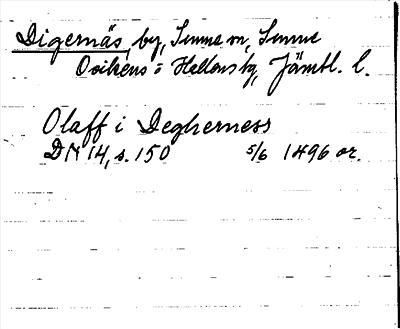 Digernäs by, Sunne sn, Sunne
Ovikens o Hellens tg, Jämtl. l.
Olaff i Degherness
DN 14, s. 150 5/6 1496 or.